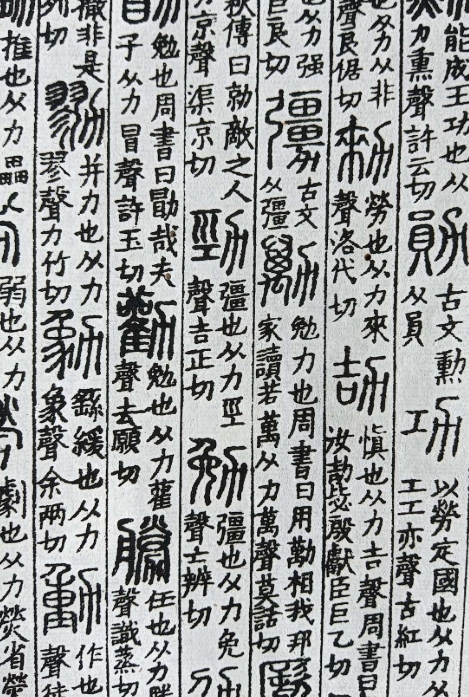 能成王功也从
力熏聲許云切
勛
古文勳
从員
功
以勞定國也从力从
工工亦聲古紅切
也从力从非
聲良倨切
勑
勞也从力來
聲洛代切
劼
慎也从力吉聲周書曰
汝劼毖殷獻臣巨乙切
也从力强
巨良切
古文
从彊
勱
勉力也周書曰用勱相我邦
家讀若萬从力萬聲莫話切
秋傳曰勍敵之人
力京聲渠京切
勁
彊也从力巠
聲吉正切
勉
彊也从力免
聲亡辨切
勉也周書曰勖哉夫
子从力冒聲許玉切
勸
勉也从力雚
聲去願切
勝
任也从力朕
聲識蒸切
撤非是
列切
勠
并力也从力
翏聲力竹切
勨
繇緩也从力
象聲余兩切
動
作也
聲徒
推也从力畾
弱也从力
劇也从力熒省熒